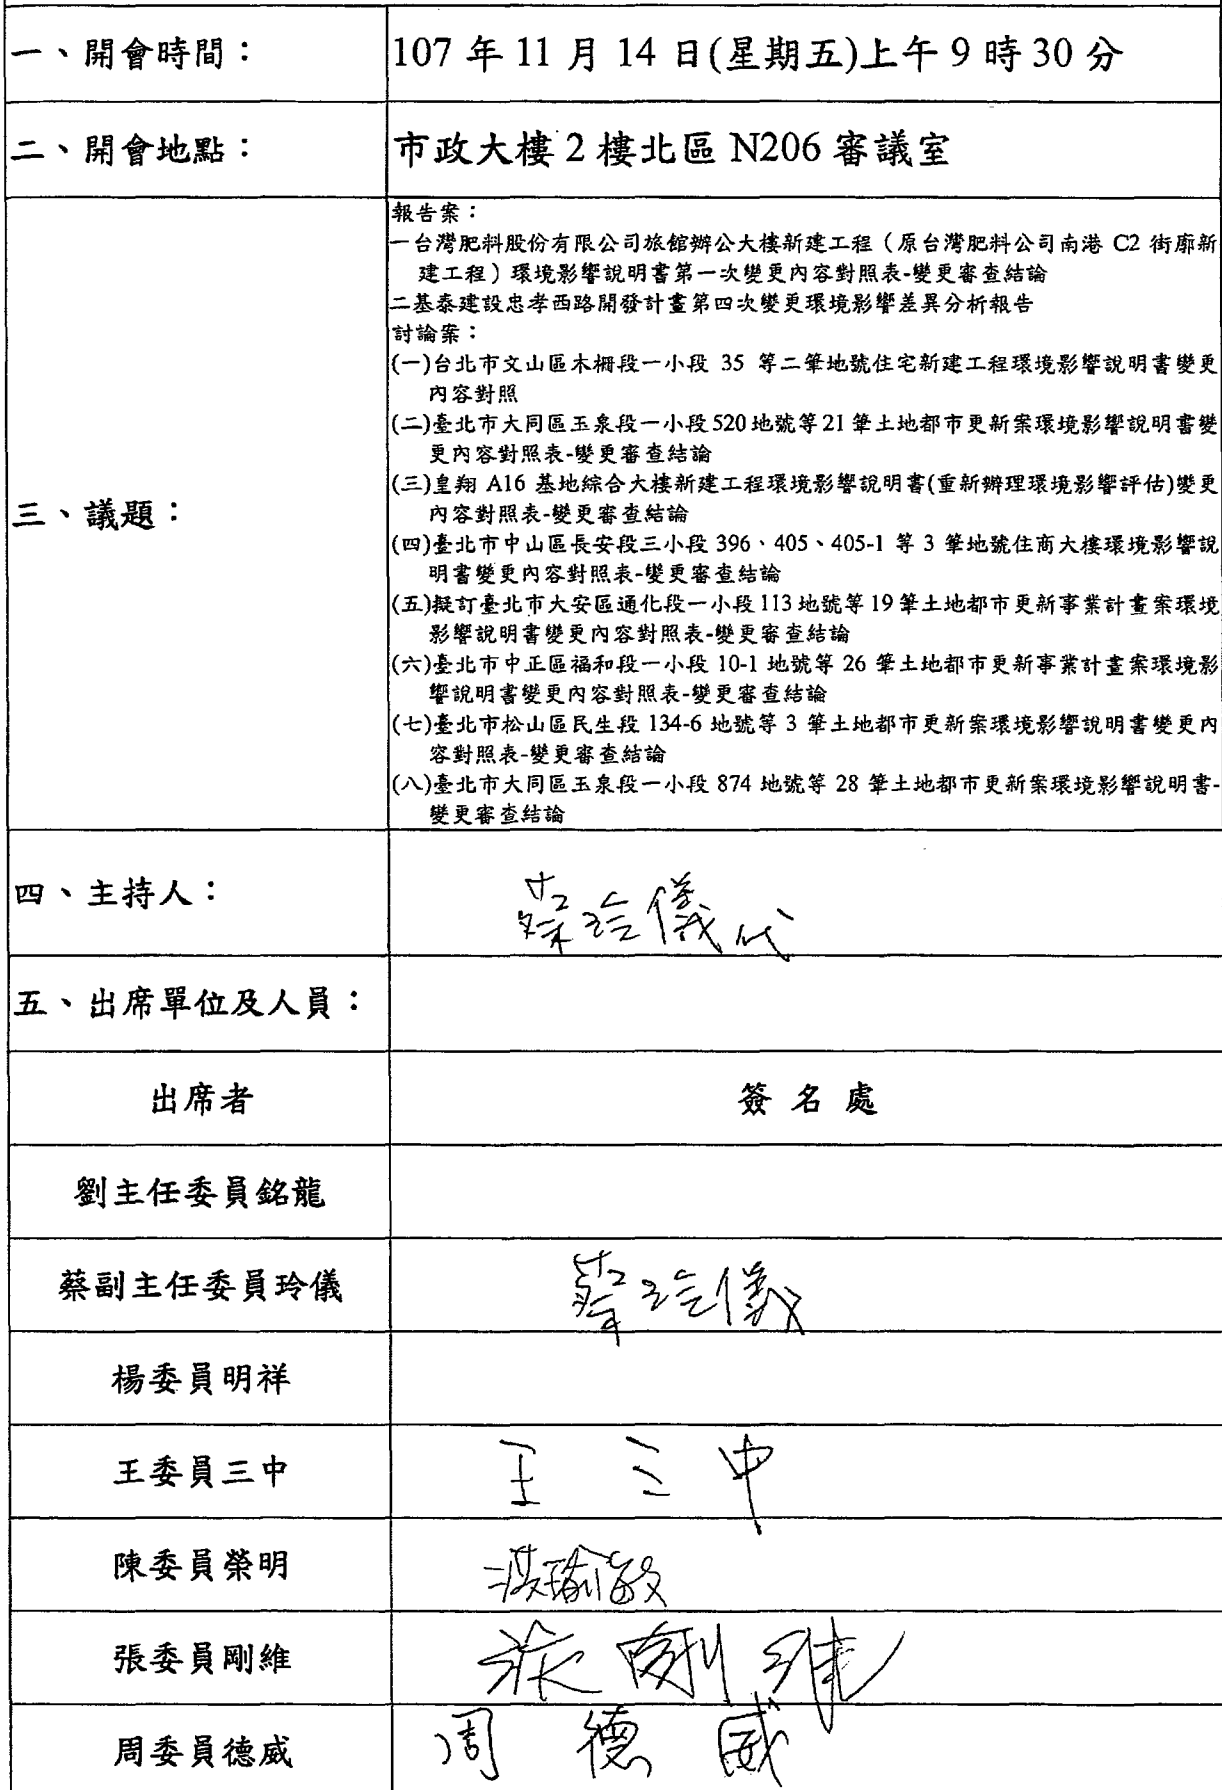 一、開會時間：
107 年 11 月 14 日(星期五)上午 9 時 30 分
二、開會地點：
市政大樓 2 樓北區 N206 審議室
三、議題：
報告案：
一台灣肥料股份有限公司旅館辦公大樓新建工程（原台灣肥料公司南港 C2 街廓新
建工程）環境影響說明書第一次變更內容對照表-變更審查結論
二基泰建設忠孝西路開發計畫第四次變更環境影響差異分析報告
討論案：
(一)台北市文山區木柵段一小段 35 等二筆地號住宅新建工程環境影響說明書變更
內容對照
(二)臺北市大同區玉泉段一小段 520 地號等 21 筆土地都市更新案環境影響說明書變
更內容對照表-變更審查結論
(三)皇翔 A16 基地綜合大樓新建工程環境影響說明書(重新辦理環境影響評估)變更
內容對照表-變更審查結論
(四)臺北市中山區長安段三小段 396、405、405-1 等 3 筆地號住商大樓環境影響說
明書變更內容對照表-變更審查結論
(五)擬訂臺北市大安區通化段一小段 113 地號等 19 筆土地都市更新事業計畫案環境
影響說明書變更內容對照表-變更審查結論
(六)臺北市中正區福和段一小段 10-1 地號等 26 筆土地都市更新事業計畫案環境影
響說明書變更內容對照表-變更審查結論
(七)臺北市松山區民生段 134-6 地號等 3 筆土地都市更新案環境影響說明書變更內
容對照表-變更審查結論
(八)臺北市大同區玉泉段一小段 874 地號等 28 筆土地都市更新案環境影響說明書-
變更審查結論
四、主持人：
蔡玲儀代
五、出席單位及人員：
出席者
簽 名 處
劉主任委員銘龍
蔡副主任委員玲儀
蔡玲儀
楊委員明祥
王委員三中
王三中
陳委員榮明
洪瑜敏
張委員剛維
張剛維
周委員德威
周德威